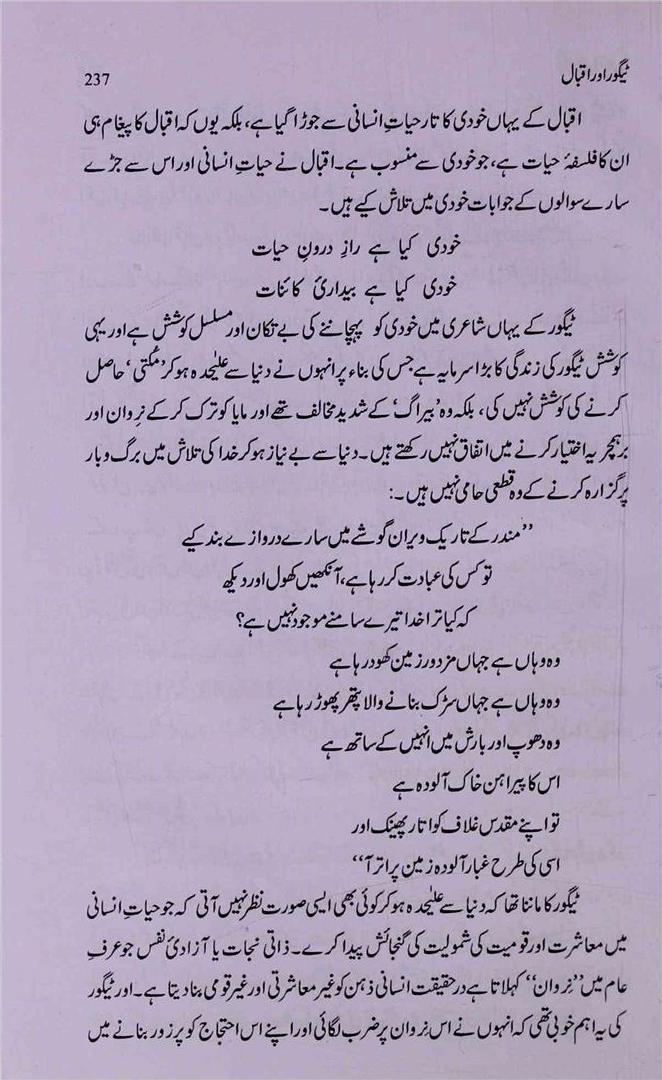 ٹیگور اور اقبال 237
اقبال کے یہاں خودی کا تار حیاتِ انسانی سے جوڑا گیا ہے، بلکہ یوں کہ اقبال کا پیغام ہی
ان کا فلسفۂ حیات ہے، جو خودی سے منسوب ہے۔ اقبال نے حیاتِ انسانی اور اس سے جڑے
سارے سوالوں کے جوابات خودی میں تلاش کیے ہیں۔
خودی کیا ہے رازِ درونِ حیات
خودی کیا ہے بیداریٔ کائنات
ٹیگور کے یہاں شاعری میں خودی کو پہچاننے کی بے تکان اور مسلسل کوشش ہے اور یہی
کوشش ٹیگور کی زندگی کا بڑا سرمایہ ہے جس کی بناء پر انہوں نے دنیا سے علیٰحدہ ہو کر ’مکتی‘ حاصل
کرنے کی کوشش نہیں کی، بلکہ وہ ’بیراگ‘ کے شدید مخالف تھے اور مایا کو ترک کر کے نِروان اور
برہمچریہ اختیار کرنے میں اتفاق نہیں رکھتے ہیں۔ دنیا سے بے نیاز ہو کر خدا کی تلاش میں برگ و بار
پر گزارہ کرنے کے وہ قطعی حامی نہیں ہیں۔:
”مندر کے تاریک ویران گوشے میں سارے دروازے بند کیے
تو کس کی عبادت کر رہا ہے، آنکھیں کھول اور دیکھ
کہ کیا ترا خدا تیرے سامنے موجود نہیں ہے؟
وہ وہاں ہے جہاں مزدور زمین کھود رہا ہے
وہ وہاں ہے جہاں سڑک بنانے والا پتھر پھوڑ رہا ہے
وہ دھوپ اور بارش میں انہیں کے ساتھ ہے
اس کا پیراہن خاک آلودہ ہے
تو اپنے مقدس غلاف کو اتار پھینک اور
اسی کی طرح غبار آلودہ زمین پر اتر آ“
ٹیگور کا ماننا تھا کہ دنیا سے علیٰحدہ ہو کر کوئی بھی ایسی صورت نظر نہیں آتی کہ جو حیاتِ انسانی
میں معاشرت اور قومیت کی شمولیت کی گنجائش پیدا کرے۔ ذاتی نجات یا آزادیٔ نفس جو عرفِ
عام میں ”نِروان“ کہلاتا ہے درحقیقت انسانی ذہن کو غیر معاشرتی اور غیر قومی بنا دیتا ہے۔ اور ٹیگور
کی یہ اہم خوبی تھی کہ انہوں نے اس نِروان پر ضرب لگائی اور اپنے اس احتجاج کو پر زور بنانے میں